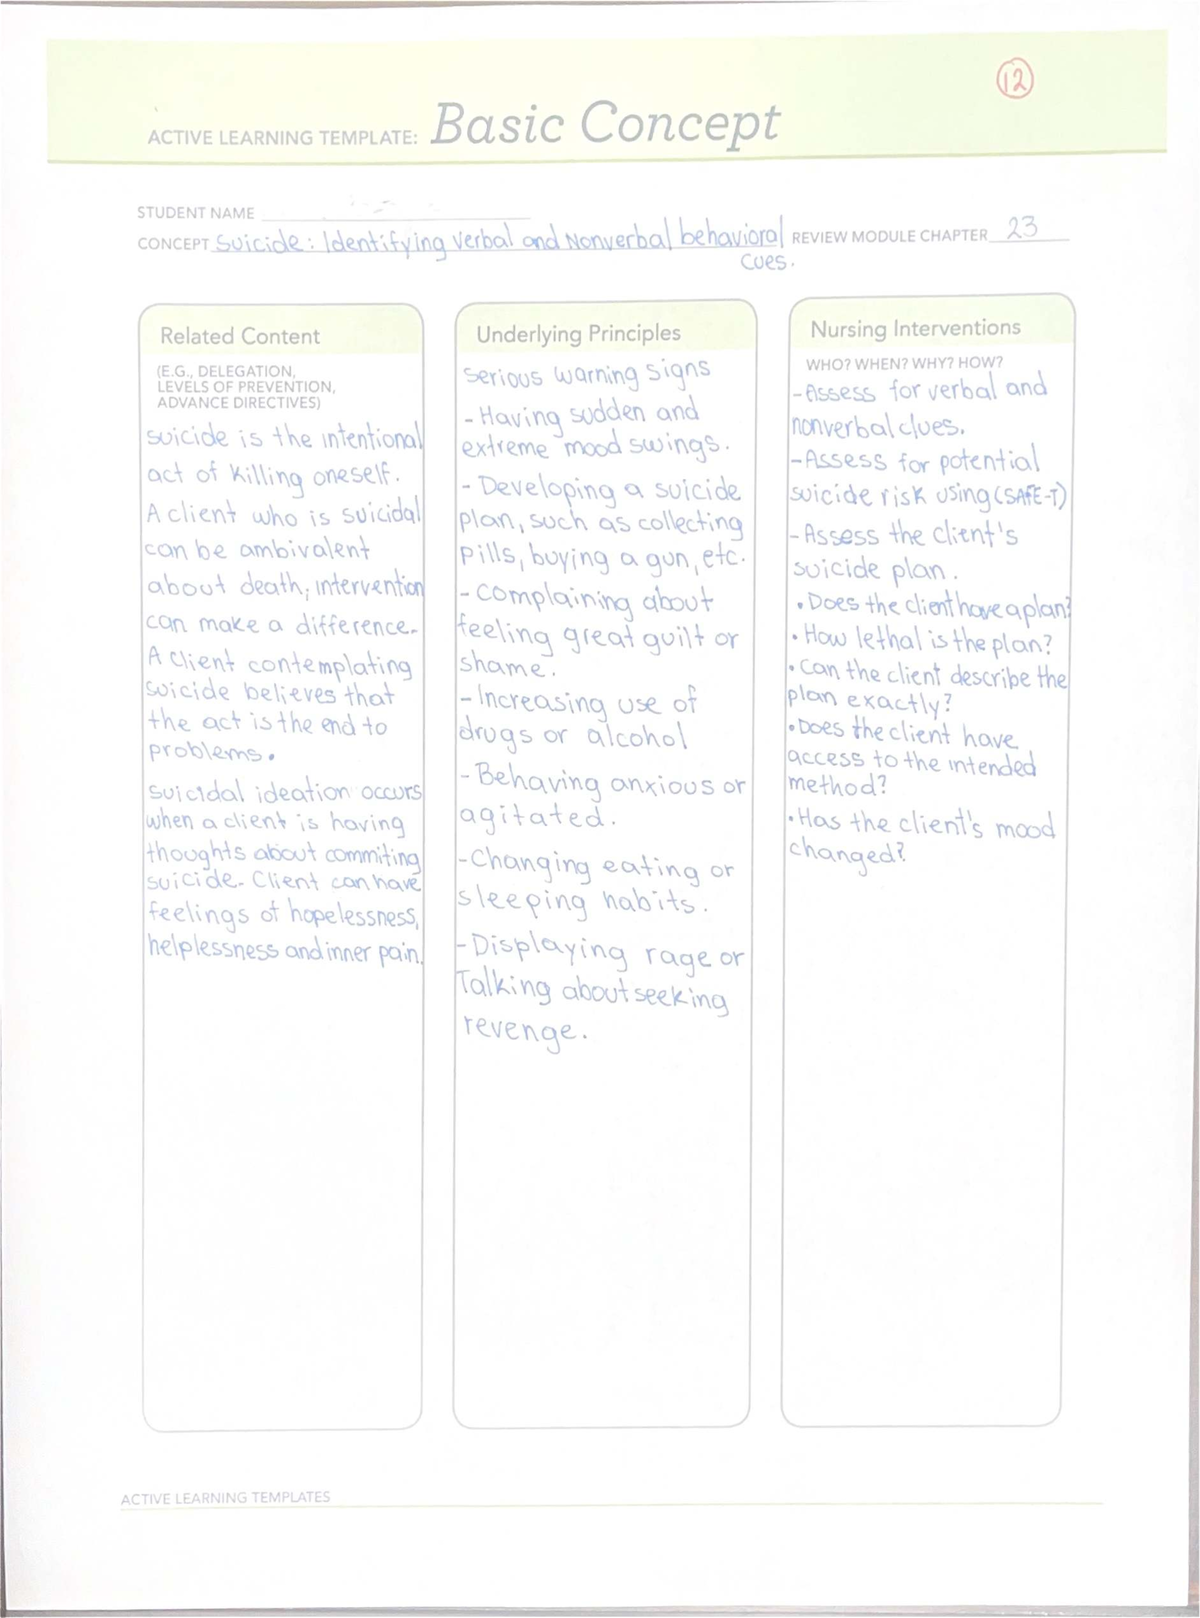 12
ACTIVE LEARNING TEMPLATE: Basic Concept
STUDENT NAME
CONCEPT Suicide: Identifying verbal and Nonverbal behavioral REVIEW MODULE CHAPTER 23
cues.
Related Content
(E.G., DELEGATION,
LEVELS OF PREVENTION,
ADVANCE DIRECTIVES)
suicide is the intentional
act of killing oneself.
A client who is suicidal
can be ambivalent
about death; intervention
can make a difference.
A client contemplating
suicide believes that
the act is the end to
problems.
suicidal ideation occurs
when a client is having
thoughts about commiting
suicide. Client can have
feelings of hopelessness,
helplessness and inner pain.
Underlying Principles
serious warning signs
- Having sudden and
extreme mood swings.
- Developing a suicide
plan, such as collecting
pills, buying a gun, etc.
- complaining about
feeling great guilt or
shame.
- Increasing use of
drugs or alcohol
- Behaving anxious or
agitated.
- Changing eating or
sleeping habits.
- Displaying rage or
Talking about seeking
revenge.
Nursing Interventions
WHO? WHEN? WHY? HOW?
- Assess for verbal and
nonverbal clues.
- Assess for potential
suicide risk using (SAFE-T)
- Assess the client's
suicide plan.
• Does the client have a plan?
• How lethal is the plan?
• Can the client describe the
plan exactly?
• Does the client have
access to the intended
method?
• Has the client's mood
changed?
ACTIVE LEARNING TEMPLATES